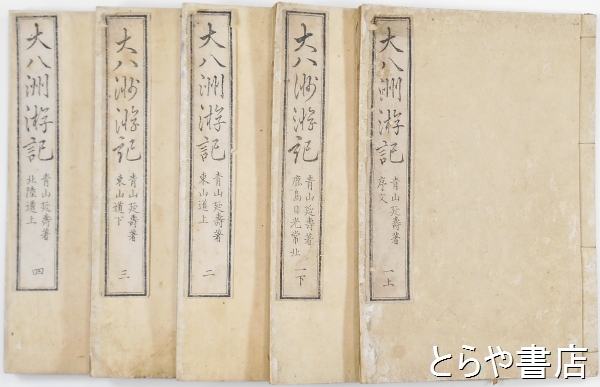 大八洲游記
青山延壽著
序文
一上
大八洲游記
青山延壽著
鹿島日光常北
一下
大八洲游記
青山延壽著
東山道上
二
大八洲游記
青山延壽著
東山道下
三
大八洲游記
青山延壽著
北陸道上
四
とらや書店